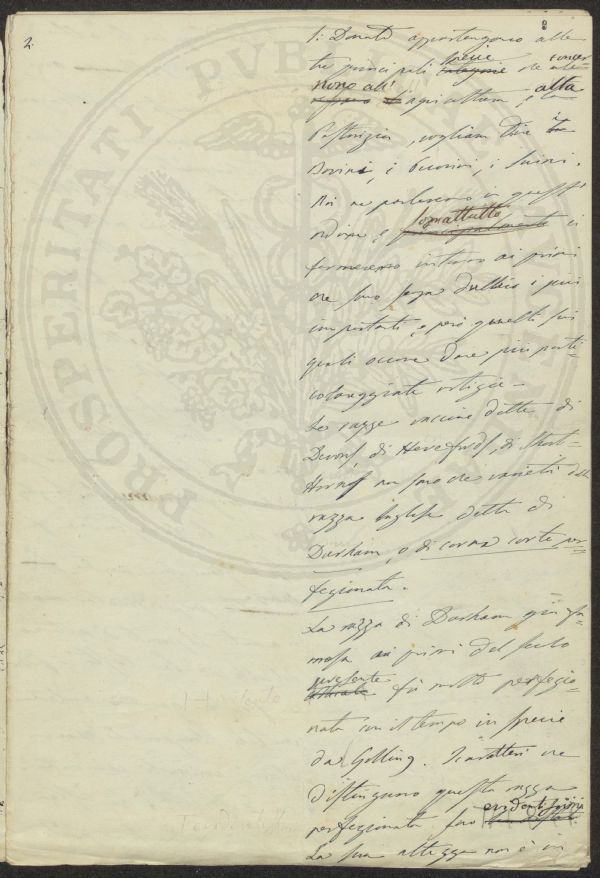 2.
8
I: Donati appartengono alle
tre principali specie che concer-
nono all' agricultura, e alta
Pastorizia, vogliam dire i
Bovini, i Pecorini, i Suini.
Noi ne parleremo in quest'
ordine e sopratutto ci
fermeremo intorno ai primi
che sono senza dubbio i più
importanti, e però quelli sui
quali occorre dare più parti-
coloreggiate notizie -
Le razze vaccine dette di
Devons, di Herefords, di Short-
Horns non sono che varietà della
razza Inglese detta di
Durham, o di corna corte per-
fezionata.
La razza di Durham già fa-
mosa ai primi del secolo
presente fù molto perfezio-
nata con il tempo in specie
da Colling. I caratteri che
distinguono questa razza
perfezionata sono
La sua altezza non è
PROSPERITATI PUBLICAE